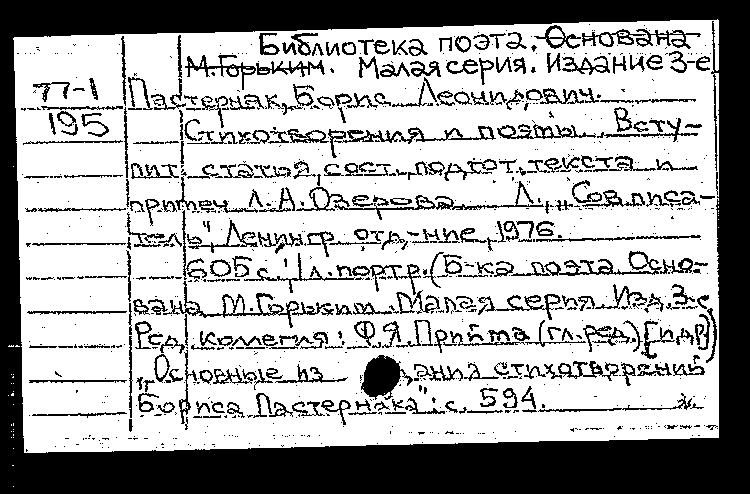 Библиотека поэта. Основана
М.Горьким. Малая серия. Издание 3-е
77-1 Пастернак, Борис Леонидович.
195 Стихотворения и поэмы. Всту-
пит. статья, сост., подгот. текста и
примеч Л.А.Озерова. Л., „Сов.писа-
тель", Ленингр. отд-ние, 1976.
605 с.; 1 л. портр. (Б-ка поэта. Осно-
вана М.Горьким. Малая серия. Изд. 3-е.
Ред. коллегия: Ф.Я.Прийма (гл.ред.) [и др.])
„Основные из ания стихотворений
Бориса Пастернака": с. 594.